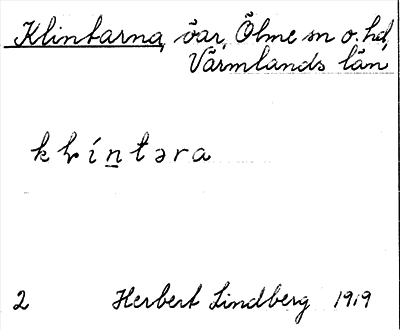 Klintarna, åar, Ölme sn o. hd,
Värmlands län
2 Herbert Lindberg 1919